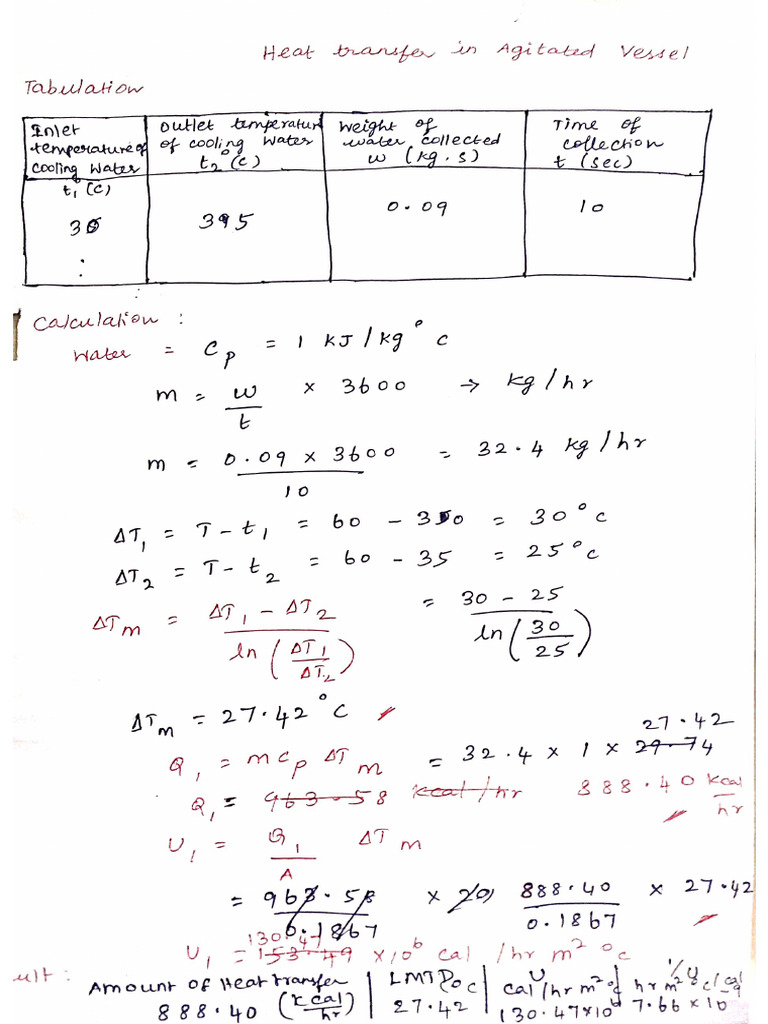 Heat transfer in Agitated Vessel
Tabulation
Inlet temperature of cooling water t₁ (c)
Outlet temperatur of cooling water t₂° (c)
Weight of water collected w (kg.s)
Time of collection t (sec)
30 395 0.09 10
:
Calculation :
Water = Cp = 1 KJ/kg° c
m = w/t × 3600 → kg/hr
m = 0.09 × 3600 / 10 = 32.4 kg/hr
ΔT₁ = T - t₁ = 60 - 30 = 30°c
ΔT₂ = T - t₂ = 60 - 35 = 25°c
ΔTm = ΔT₁ - ΔT₂ / ln (ΔT₁/ΔT₂) = 30 - 25 / ln (30/25)
ΔTm = 27.42°C
27.42
Q₁ = m cp ΔTm = 32.4 × 1 × 29.74
Q₁ = 963.58 kcal/hr 888.40 kcal/hr
U₁ = Q₁/A ΔTm
= 963.58/0.1867 × 888.40/0.1867 × 27.42
130.47
U₁ = 153.49 × 10⁶ cal /hr m² °c
ult :
Amount of Heat transfer (kcal/hr) | LMTD °c | U cal/hr m² °c | 1/U hr m² °c/cal
888.40 27.42 130.47×10⁶ 7.66 × 10